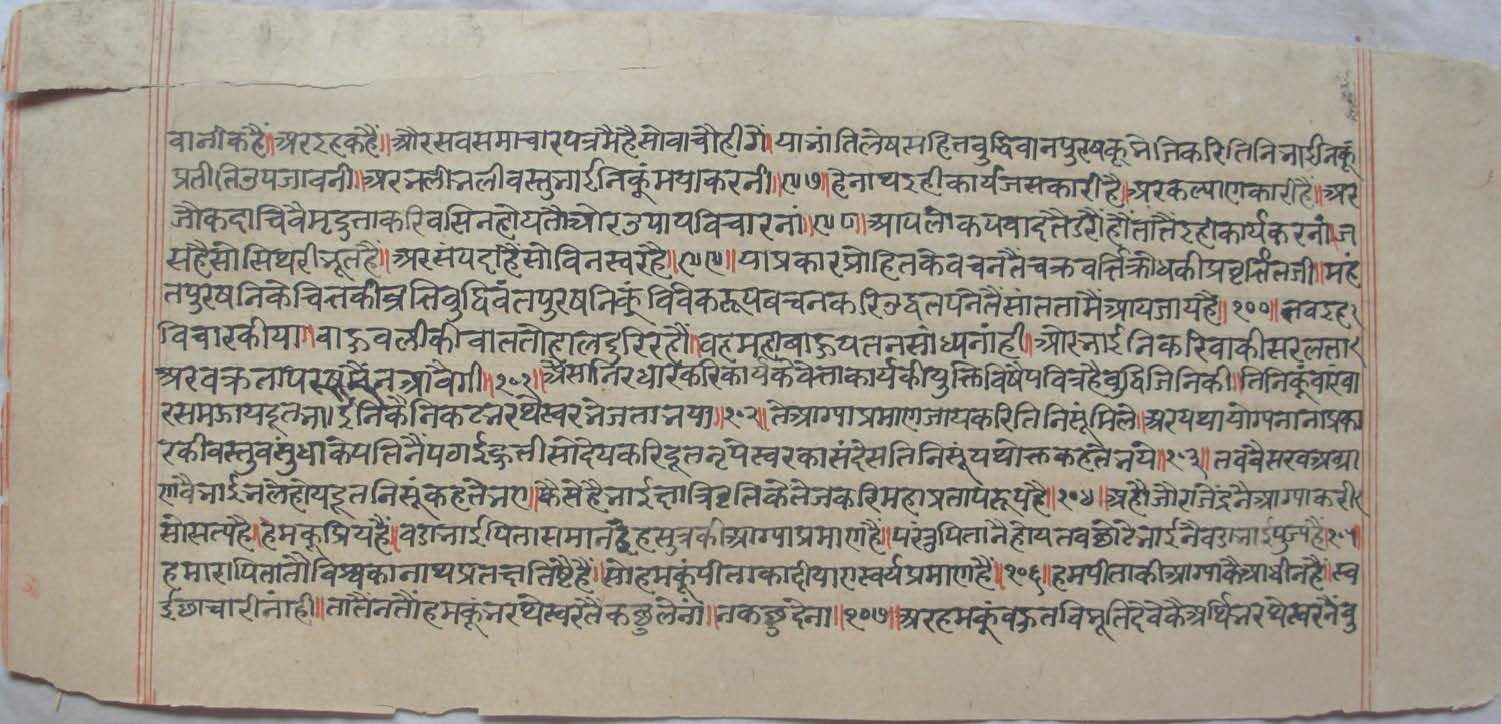 वानीक है॥ अर इह कहै॥ और सब समाचार पत्र मै है सो वाचौहीगे॥ या भांति लेष सहित बुद्धिवान पुरुषकू भेजि करि तिनि भाईनिकूं
प्रतीति उपजावनी॥ अर भली भली वस्तु भाईनिकूं मया करनी॥९७॥ हे नाथ इही कार्य जसकारी है॥ अर कल्याणकारी है॥ अर
जौ कदाचि वै मृदुता करि वसि न होय तौ और उपाय विचारनां॥९८॥ आप लोकापवादतै डरौ हौ तातै इही कार्य करनां॥ ज
स है सो स्थिरीभूत है॥ अर संपदा है सो विनस्वर है॥९९॥ या प्रकार प्रोहितके वचनतै चक्रवर्त्ति क्रोधकी प्रवृत्ति तजी॥ महं
त पुरुषनिके चित्तकी व्रत्ति बुद्धिवंत पुरुषनिकूं विवेकरूप बचन करि उद्वलपनेतै सांततामै आय जाय है॥१००॥ तब इह
विचार कीया॥ बाहुवलीकी बात तौ हाल दुरि रहौ॥ वह महाबाहु यतनसाध्य नांही॥ और भाईनि करि वाकी सरलता
अर वक्रता परष मै न आवैगी॥१०१॥ अैसा निरधार करि कार्यके वेत्ता कार्यकी युक्ति विषै पवित्र है बुद्धि जिनिकी॥ तिनिकूं वारंवा
र समझाय दूत भाईनिकै निकट भरथैस्वर भेजता भया॥१०२॥ ते आग्या प्रमाण जाय करि तिनिसूं मिले॥ अर यथायोग्य नाना प्रका
रकी वस्तु वसुंधाके पतिनै पगई हुती सो देय करि दूत नृपेस्वरका संदेस तिनिसूं यथोक्त कहते भये॥१०३॥ तब वै सरव अग्रा
णवै भाई भले होय दूतनिसूं कहते भए॥ कैसे है भाई क्षात्रिवृतिके तेज करि महा प्रतापरूप है॥१०४॥ अहौ जौ राजेंद्रनै आग्या करी
सो सत्य है॥ हमकू प्रिय है॥ बडा भाई पिता समान है इह सुत्रकी आग्या प्रमाण है॥ परंतु पिता नै होय तब छोटे भाईनै वडा भाई पुज्य है॥१०५॥
हमारा पिता तौ विश्वका नाथ प्रतक्ष तिष्टै है॥ सो हमकूं पीताका दीया एस्वर्य प्रमाण है॥१०६॥ हम पीताकी आग्याकै आधीन है॥ स्व
ईछाचारी नांही॥ तातै न तौ हमकूं भरथेस्वरतै कछु लेना॥ न कछु देना॥१०७॥ अर हमकूं बहुत विभूति देवेकै अर्थि भरथेस्वरनै बु